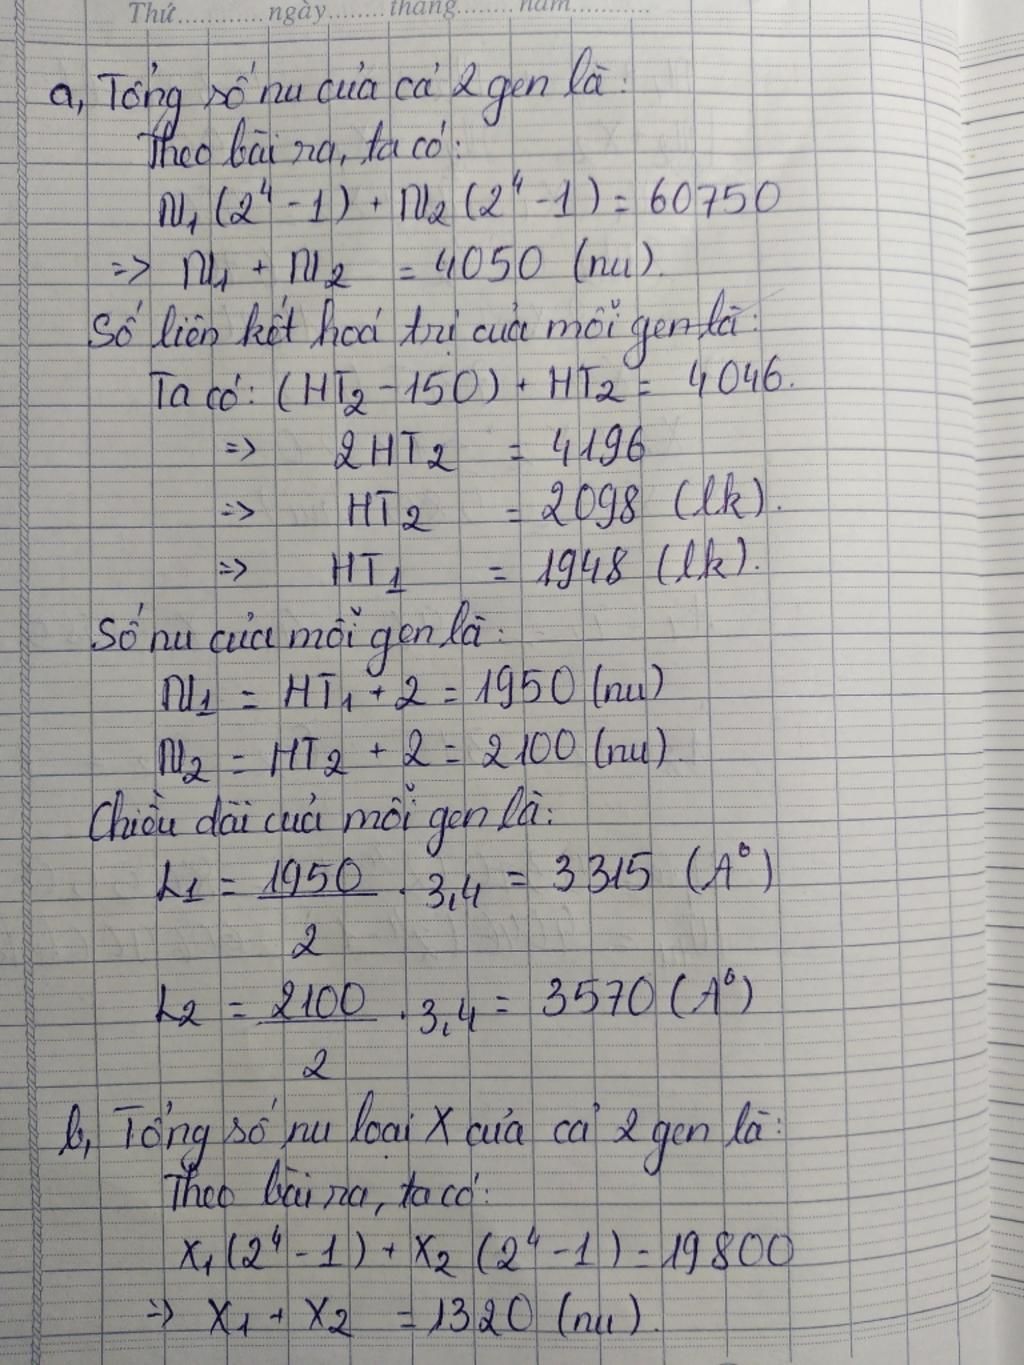 Thứ............ngày........tháng........năm............
a, Tổng số nu của cả 2 gen là:
Theo bài ra, ta có:
N₁ (2⁴ - 1) + N₂ (2⁴ - 1) = 60750
=> N₁ + N₂ = 4050 (nu).
Số liên kết hoá trị của mỗi gen là:
Ta có: (HT₂ - 150) + HT₂ = 4046.
=> 2HT₂ = 4196
=> HT₂ = 2098 (lk).
=> HT₁ = 1948 (lk).
Số nu của mỗi gen là:
N₁ = HT₁ + 2 = 1950 (nu)
N₂ = HT₂ + 2 = 2100 (nu).
Chiều dài của mỗi gen là:
L₁ = 1950/2 . 3,4 = 3315 (A°)
L₂ = 2100/2 . 3,4 = 3570 (A°)
b, Tổng số nu loại X của cả 2 gen là:
Theo bài ra, ta có:
X₁ (2⁴ - 1) + X₂ (2⁴ - 1) = 19800
=> X₁ + X₂ = 1320 (nu).